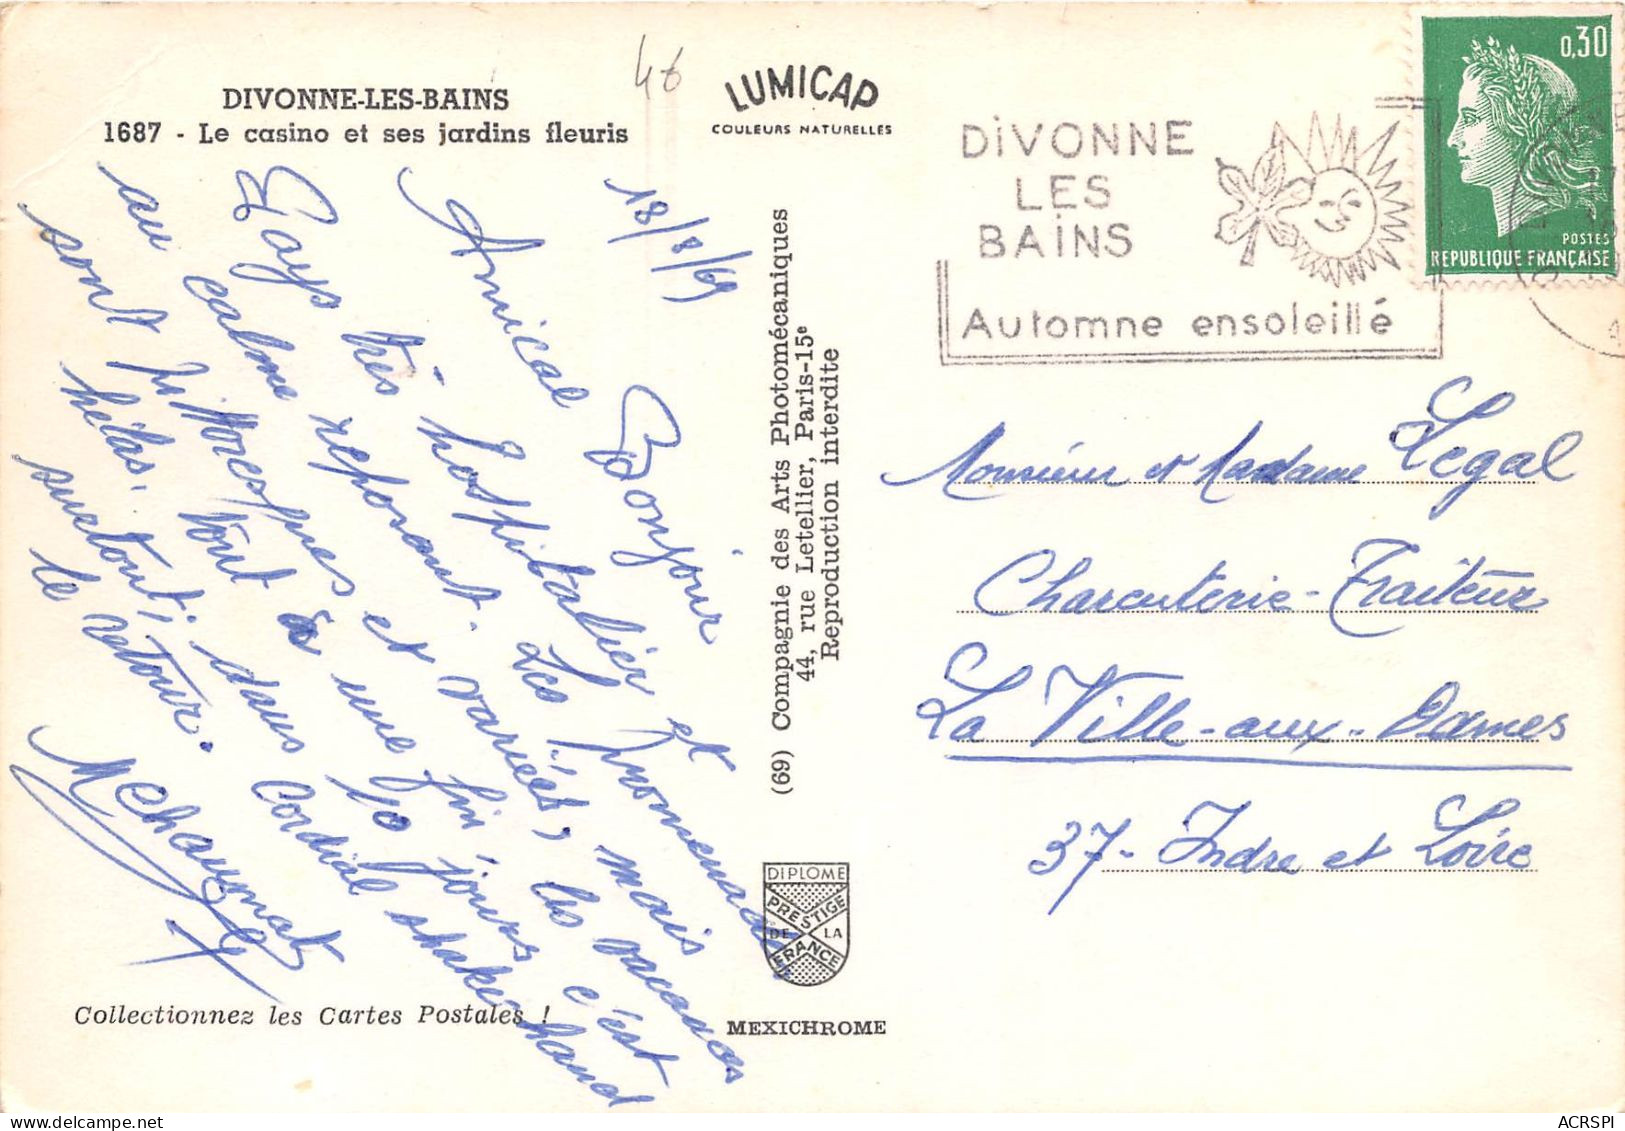 DIVONNE-LES-BAINS
1687 - Le casino et ses jardins fleuris
46
LUMICAP
COULEURS NATURELLES
18/8/69
Amical Bonjour
Pays très hospitalier et
au calme reposant. Les promenades
sont pittoresques et variées, mais
hélas, tout a une fin, les vacances
surtout; dans 10 jours c'est
le retour. Cordial shake hand
(69) Compagnie des Arts Photomécaniques
44, rue Letellier, Paris-15e
Reproduction interdite
DIPLOME
PRESTIGE
DE LA
FRANCE
MEXICHROME
Collectionnez les Cartes Postales !
DIVONNE
LES
BAINS
Automne ensoleillé
0,30
POSTES
REPUBLIQUE FRANÇAISE
Monsieur et Madame Legal
Charcuterie-Traiteur
La Ville-aux-Dames
37- Indre et Loire
ACRSPI